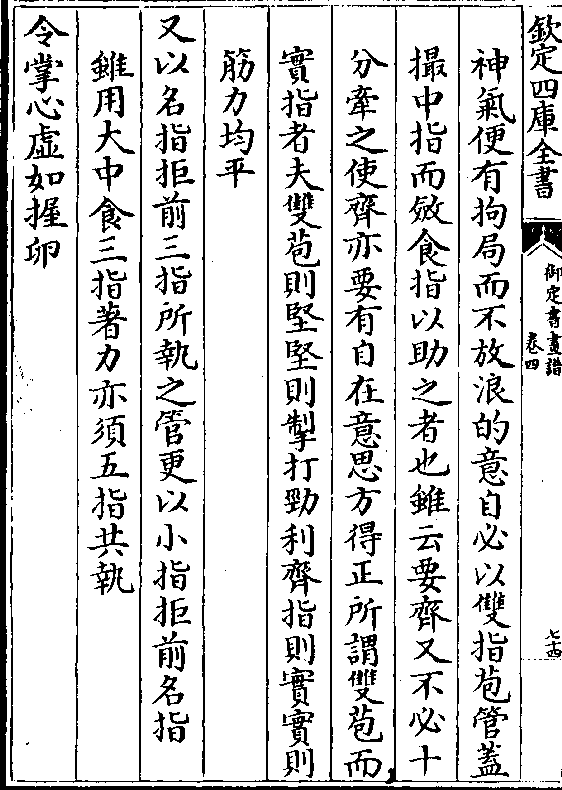 欽定四庫全書
御定書畫譜
卷四
七十四
神氣便有拘局而不放浪的意自必以雙指苞管蓋
撮中指而斂食指以助之者也雖云要齊又不必十
分牽之使齊亦要有自在意思方得正所謂雙苞而
實指者夫雙苞則堅堅則掣打勁利齊指則實實則
筋力均平
又以名指拒前三指所執之管更以小指拒前名指
雖用大中食三指著力亦須五指共執
令掌心虛如握卵